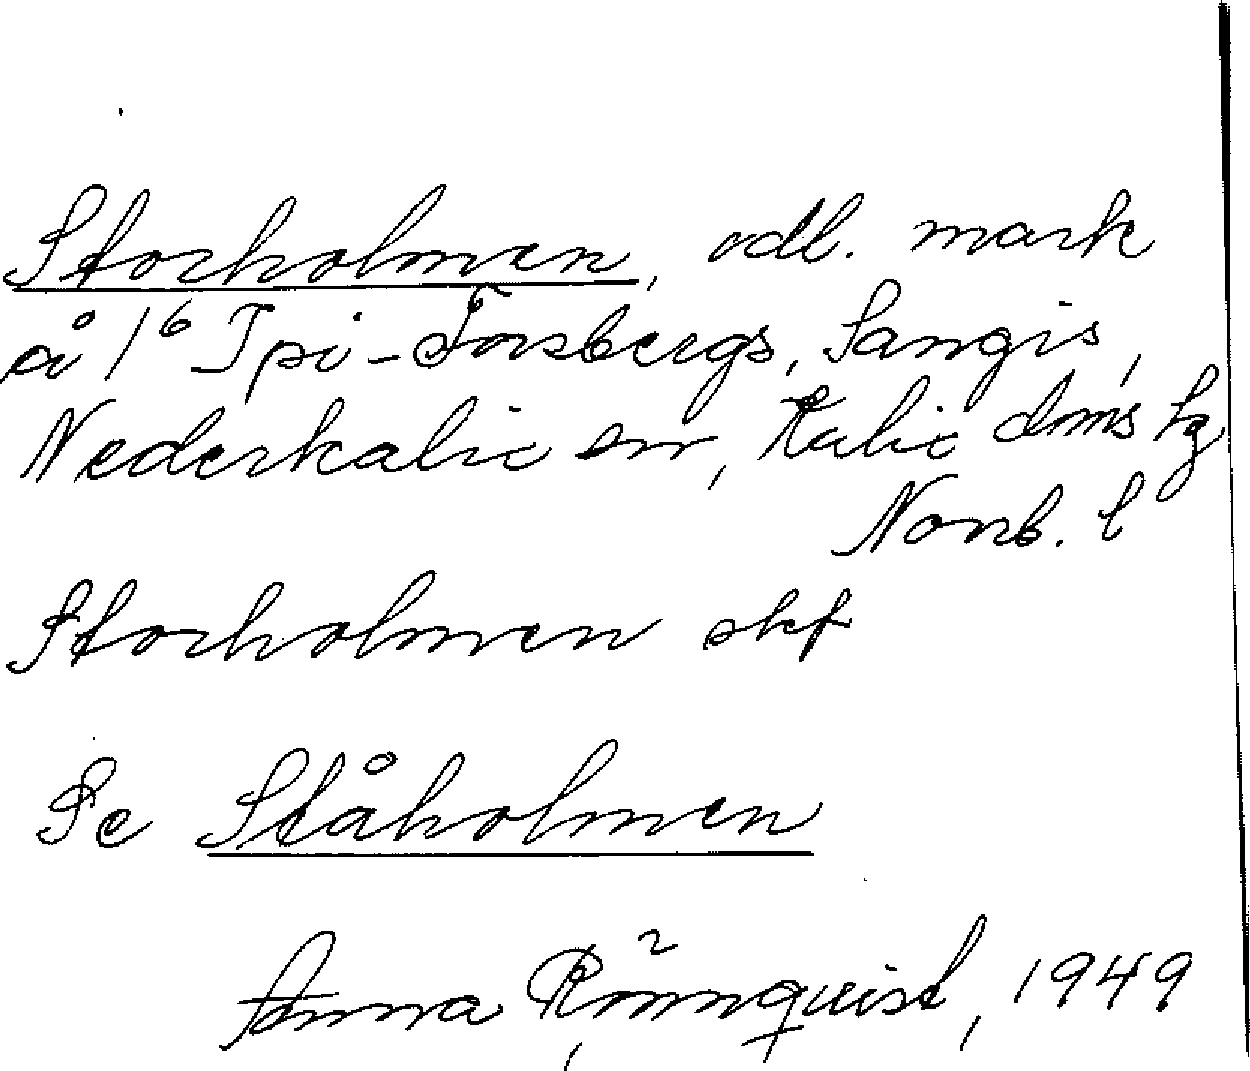 Storholmen, odl. mark
å 1⁶ Ipi-Forsbergs, Sangis,
Nederkalix sn, Kalix dms hg
Norrb. l
Storholmen skf
Se Ståholmen
Anna Rönnquist, 1949